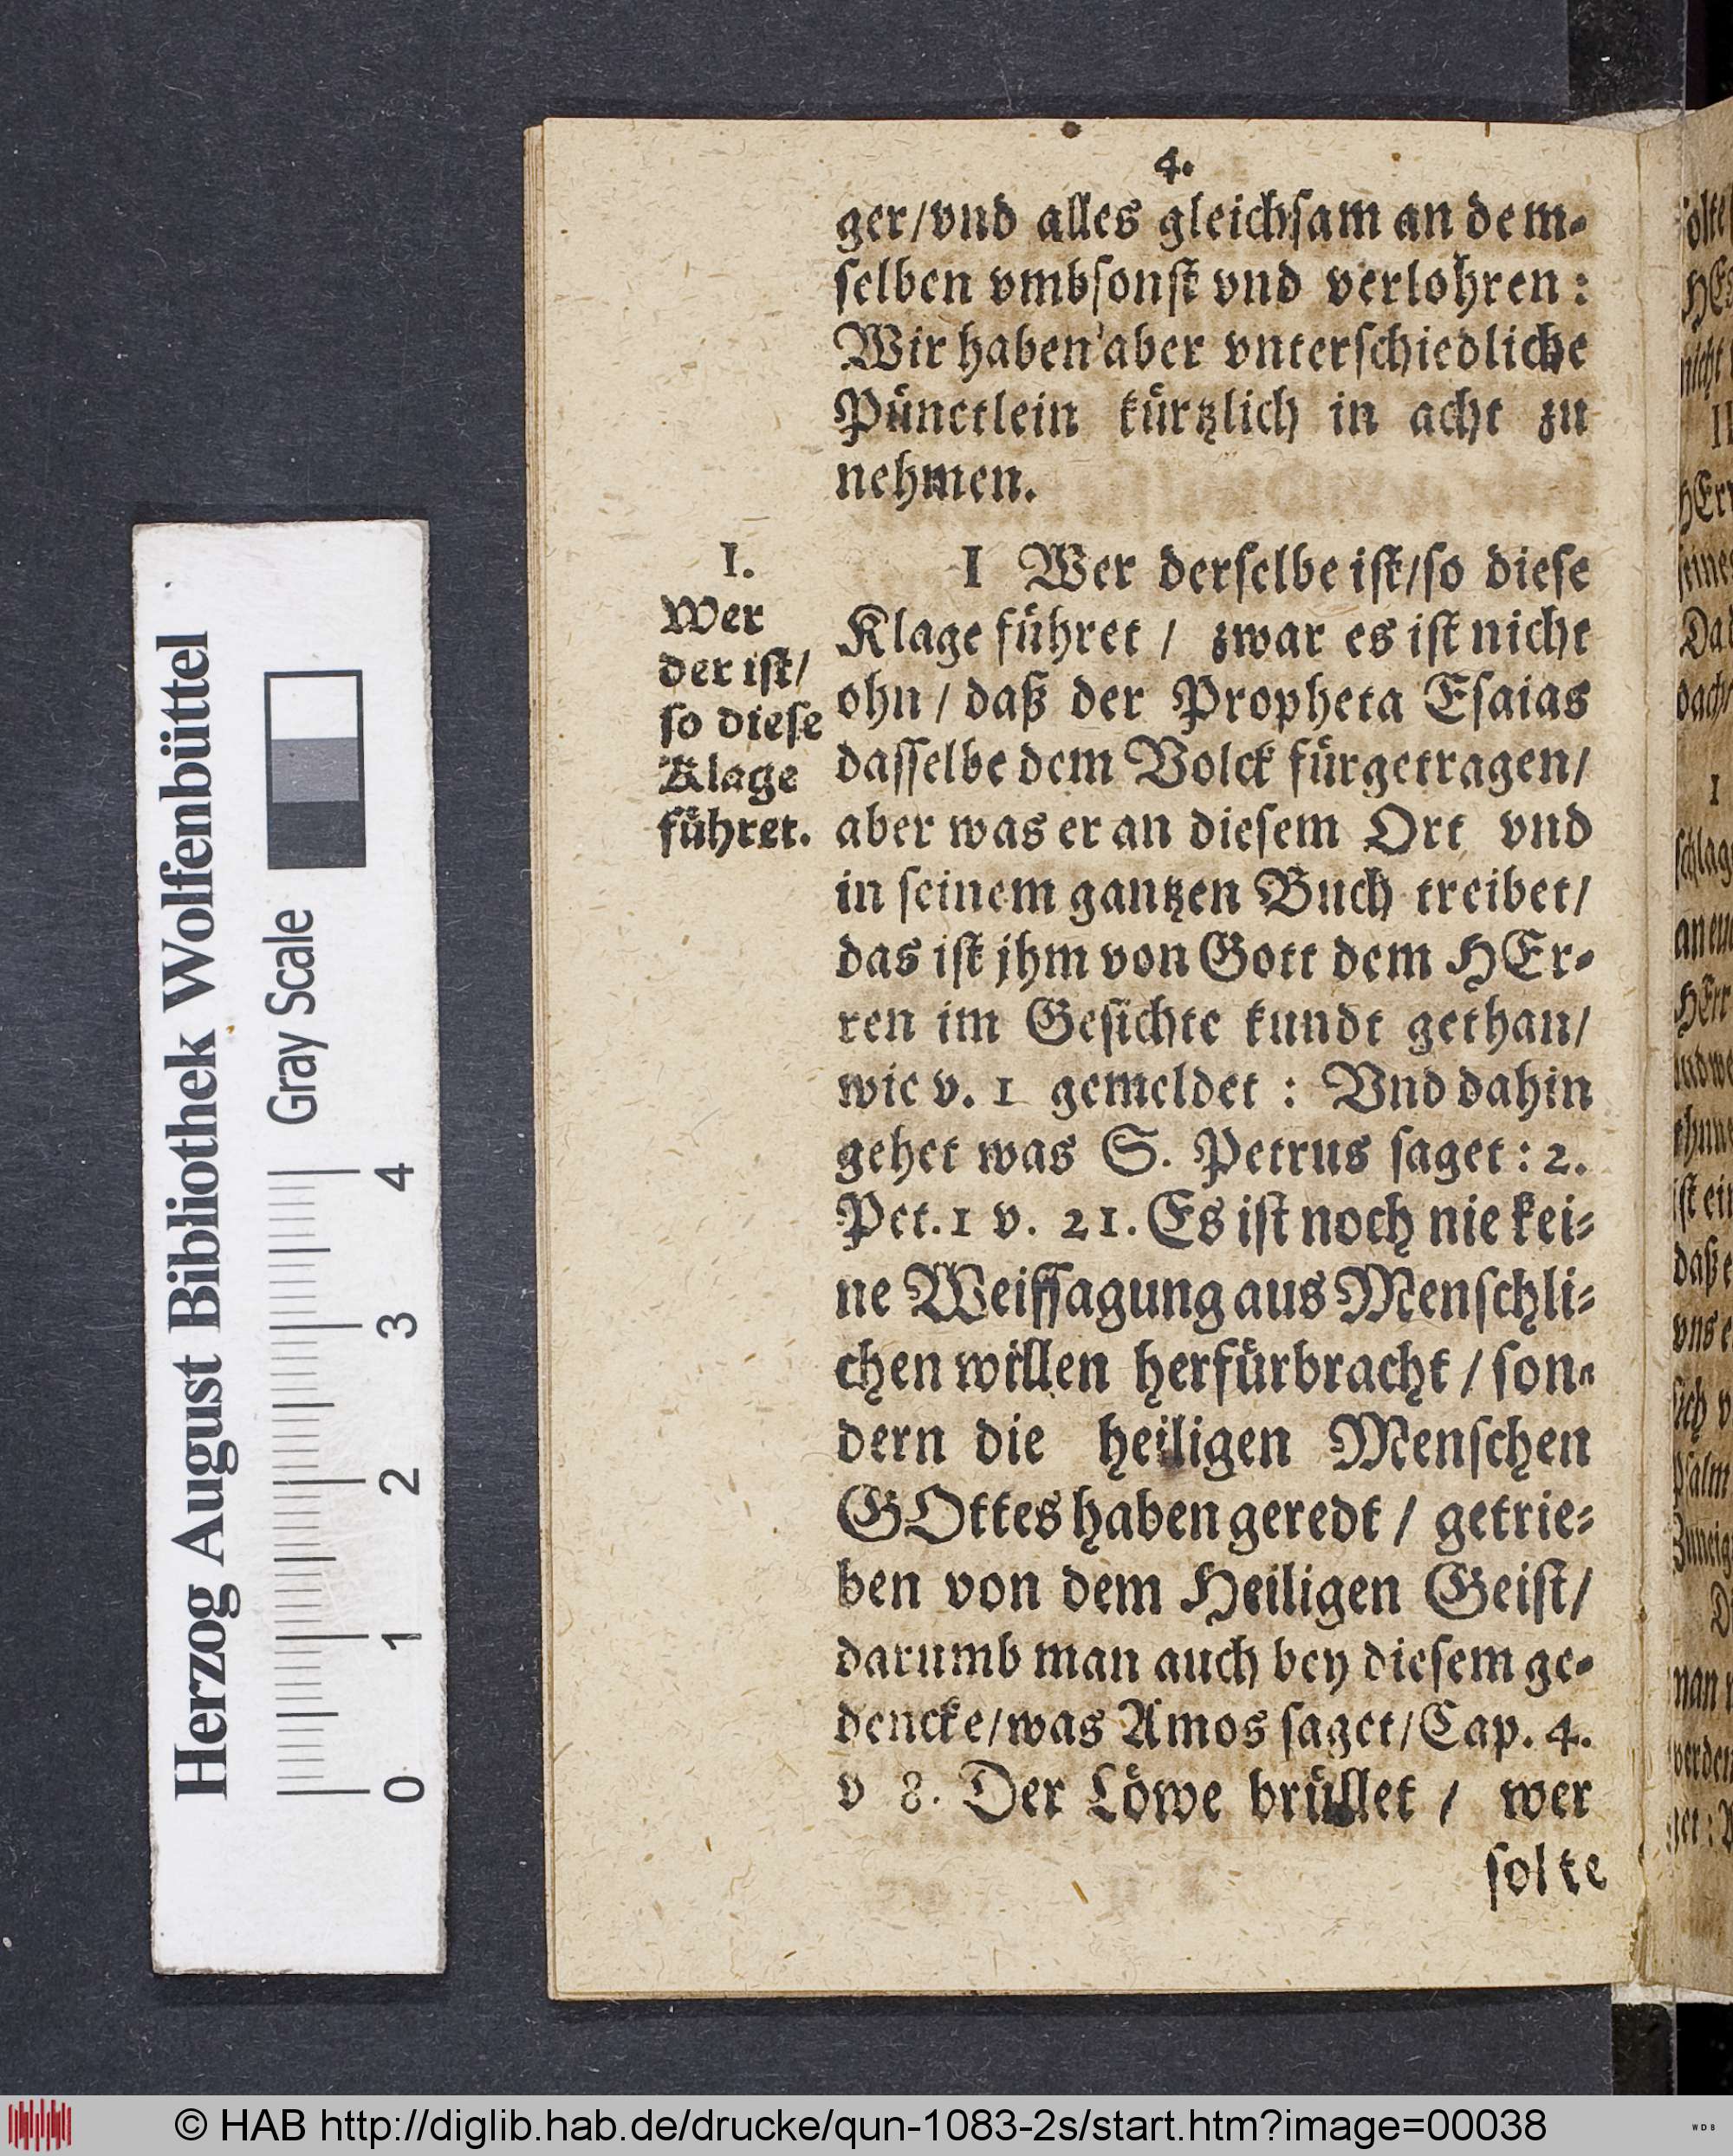 4.
ger/vnd alles gleichſam an dem⸗
ſelben vmbſonſt vnd verlohren:
Wir haben aber vnterſchiedliche
Pünctlein kürtzlich in acht zu
nehmen.
I.
Wer
der iſt/
ſo dieſe
Klage
führet.
I Wer derſelbe iſt/ſo dieſe
Klage führet / zwar es iſt nicht
ohn / daß der Propheta Eſaias
daſſelbe dem Volck fürgetragen/
aber was er an dieſem Ort vnd
in ſeinem gantzen Buch treibet/
das iſt jhm von Gott dem HEr⸗
ren im Geſichte kundt gethan/
wie v. 1 gemeldet : Vnd dahin
gehet was S. Petrus ſaget : 2.
Pet. 1 v. 21. Es iſt noch nie kei⸗
ne Weiſſagung aus Menſchli⸗
chen willen herfürbracht / ſon⸗
dern die heiligen Menſchen
GOttes haben geredt / getrie⸗
ben von dem Heiligen Geiſt/
darumb man auch bey dieſem ge⸗
dencke/was Amos ſaget/Cap. 4.
v 8. Der Löwe brüllet / wer
ſolte
Herzog August Bibliothek Wolfenbüttel
Gray Scale
0 1 2 3 4
© HAB http://diglib.hab.de/drucke/qun-1083-2s/start.htm?image=00038
WDB